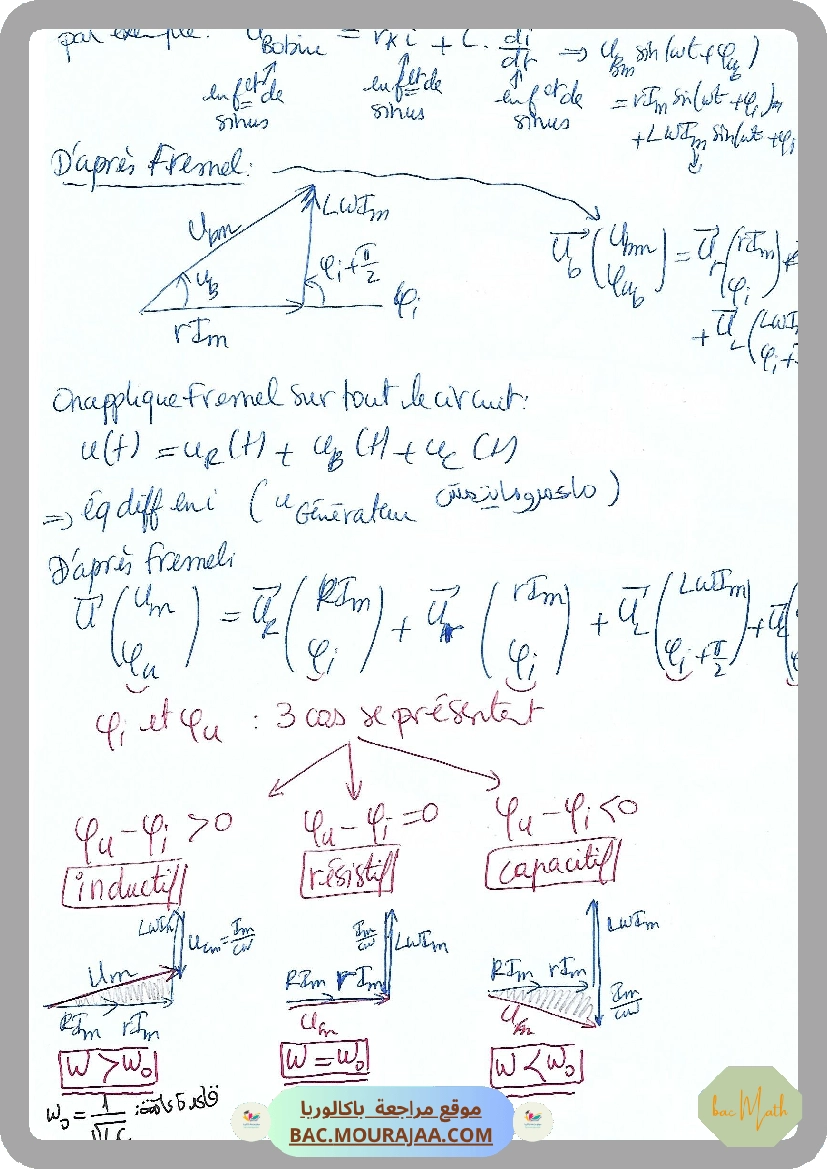 par exemple: u_Bobine = r×i + L. di/dt ⇒ U_Bm sin(ωt+φ_uB)
en fct de sinus en fct de sinus en fct de sinus
= rI_m sin(ωt+φ_i)
+ LωI_m sin(ωt+φ_i
D'après Fresnel:
U_bm LωI_m
u_B φ_i+π/2 φ_i
rI_m
U_b (U_bm φ_ub) = U_r (rI_m φ_i)
+ U_L (LωI φ_i+
On applique Fresnel sur tout le circuit:
u(t) = u_R(t) + u_B(t) + u_C(t)
⇒ éq diff en i (u Générateur ماعندوما يتمش)
D'après Fresnel:
U (U_m φ_u) = U_R (RI_m φ_i) + U_r (rI_m φ_i) + U_L (LωI_m φ_i+π/2) +
φ_i et φ_u : 3 cas se présentent
φ_u - φ_i > 0 φ_u - φ_i = 0 φ_u - φ_i < 0
inductif résistif capacitif
LωI_m U_cm = I_m/Cω I_m/Cω LωI_m LωI_m
U_m RI_m rI_m RI_m rI_m
RI_m rI_m U_m U_m I_m/Cω
ω > ω_0 ω = ω_0 ω < ω_0
ω_0 = 1/√LC
موقع مراجعة باكالوريا
BAC.MOURAJAA.COM
bac Math